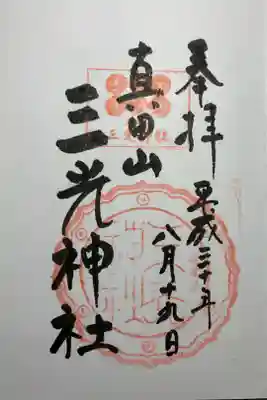 奉拝
平成三十年
八月十九日
真田山
三光神社